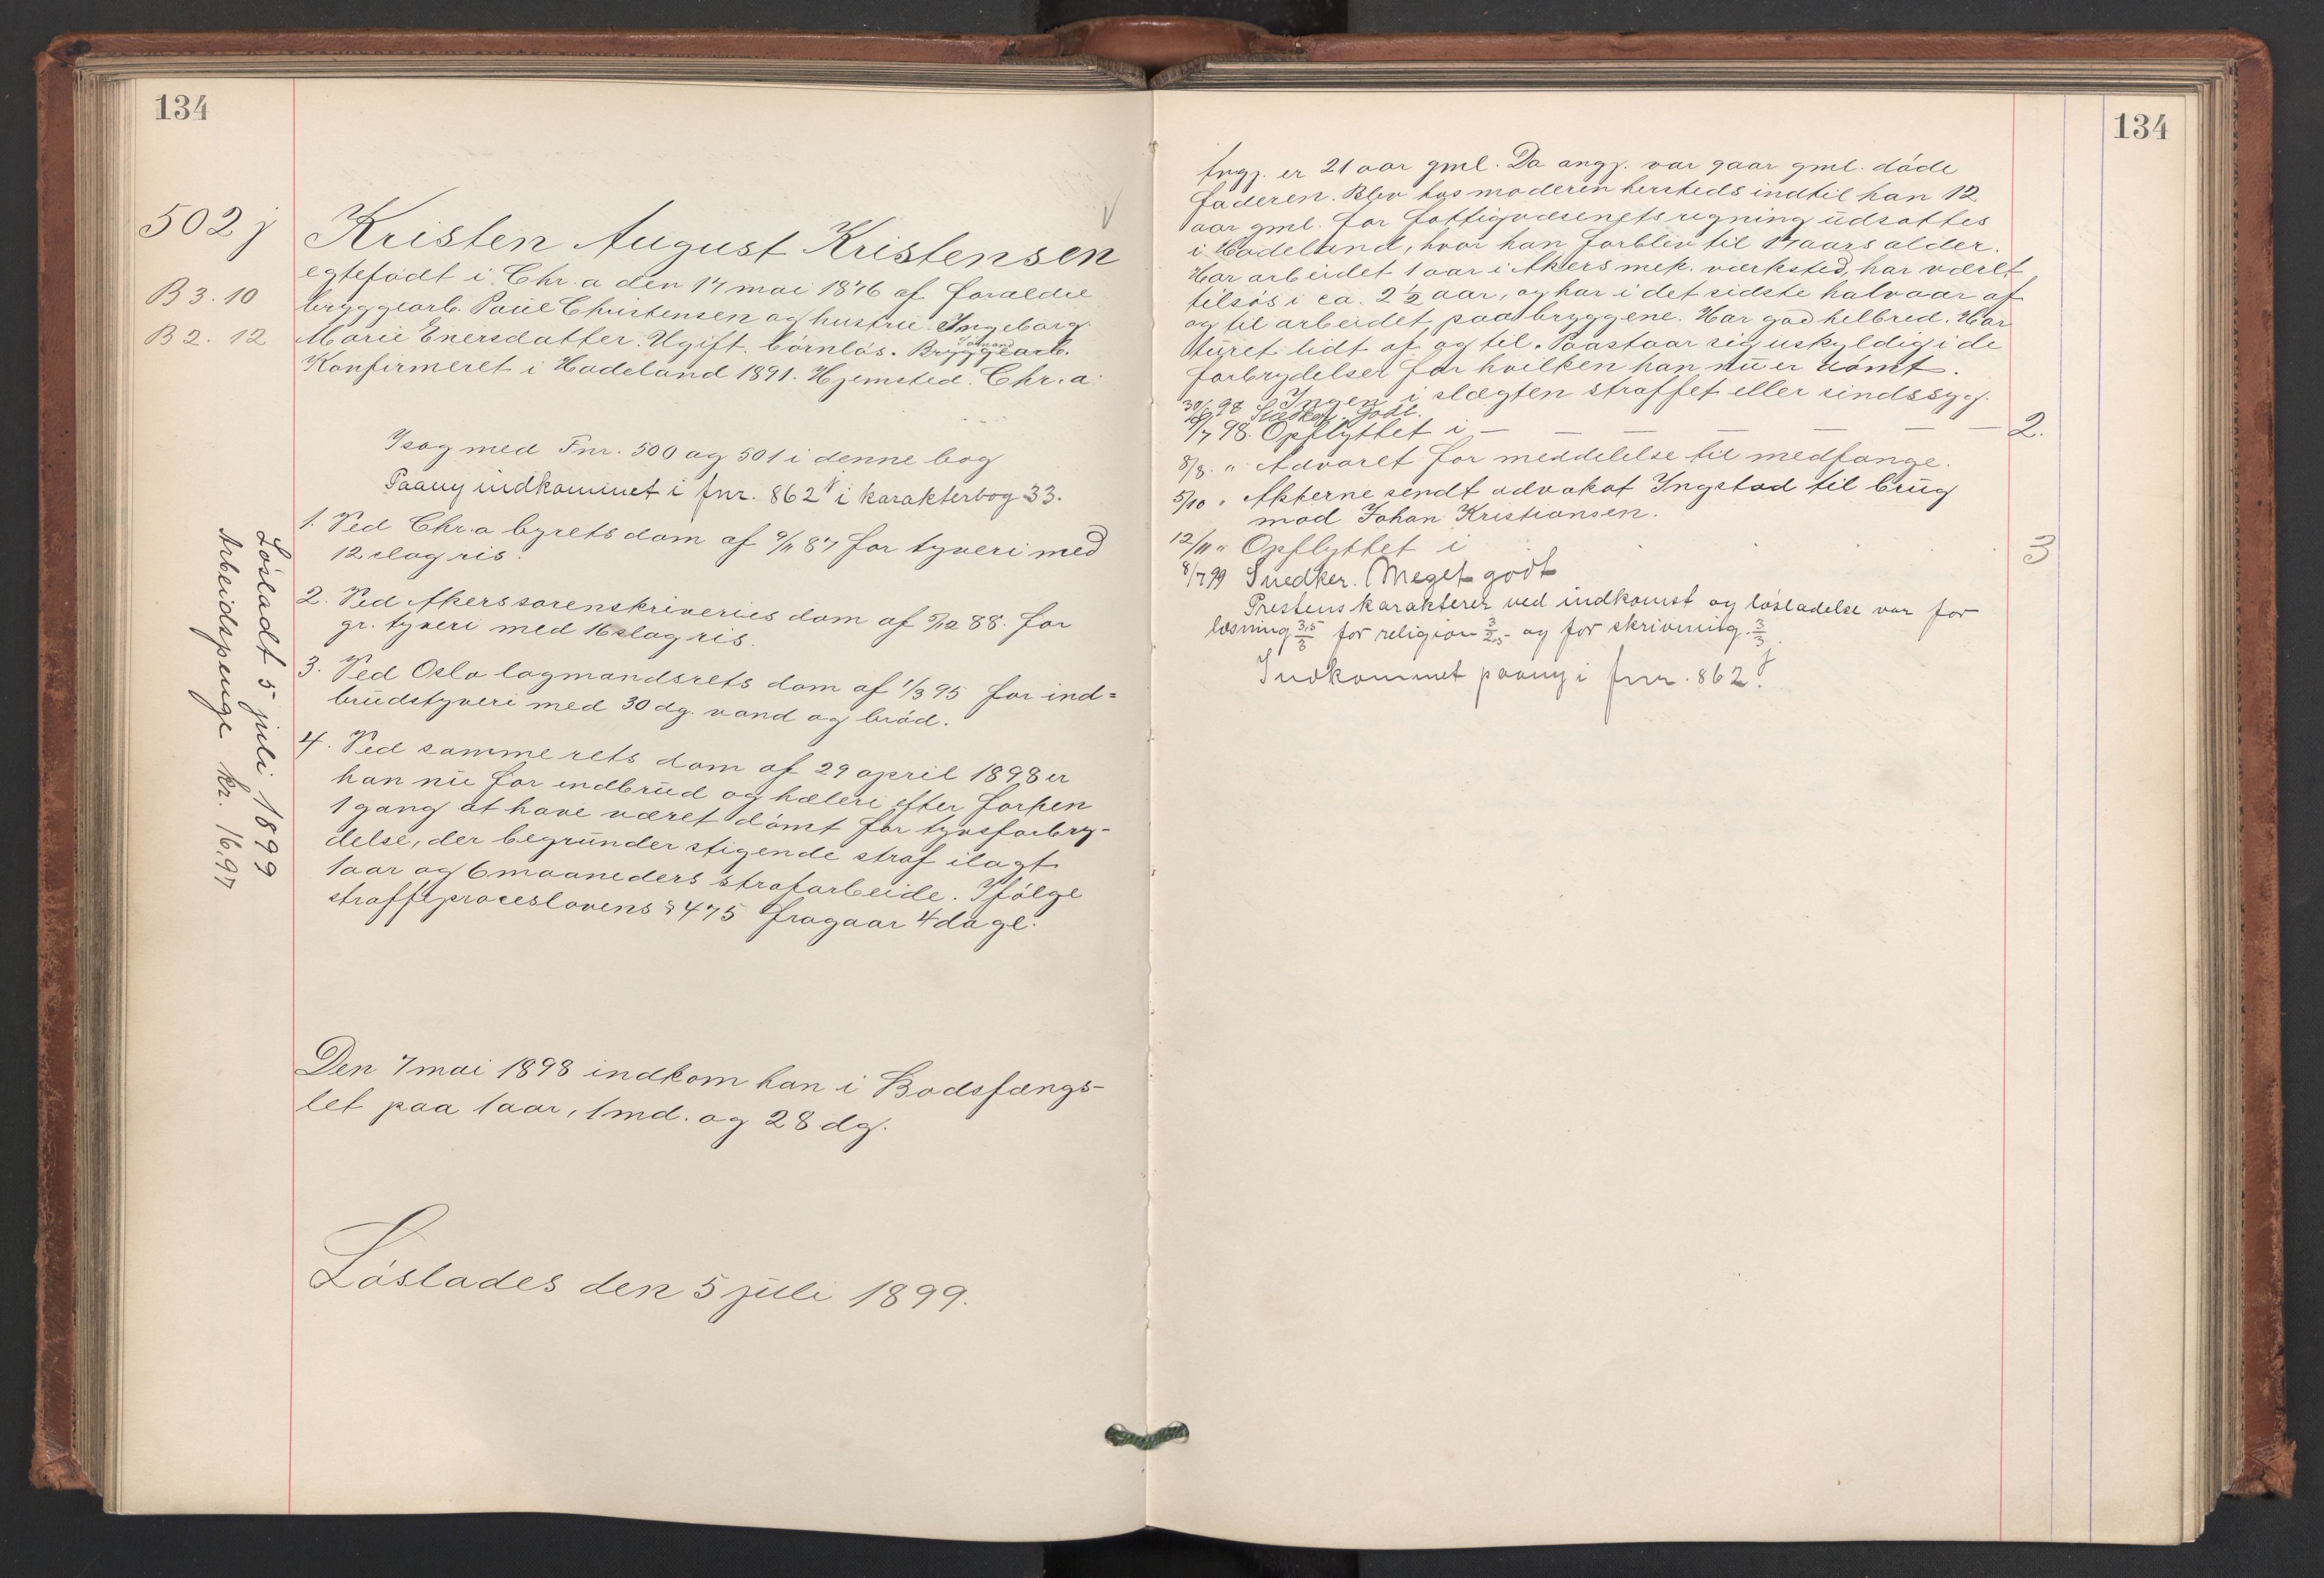 134
502 j
B 3. 10
B 2. 12
Kristen August Kristensen
egtefødt i Chr.a den 17 mai 1876 af forældre
bryggearb. Paul Christensen og hustru Ingeborg
Marie Enersdatter. Ugift. børnløs. Bryggearb.
Sømand
Konfirmeret i Hadeland 1891. Hjemsted. Chr.a.
I sag med Fnr. 500 og 501 i denne bog
Paany indkommet i fnr. 862 j i karakterbog 33.
1. Ved Chr.a byrets dom af 9/11 87 for tyveri med
12 slag ris.
2. Ved Akers sorenskriveries dom af 5/12 88. for
gr. tyveri med 16 slag ris.
3. Ved Oslo lagmandsrets dom af 1/3 95 for ind=
brudstyveri med 30 dg. vand og brød.
4. Ved samme rets dom af 29 april 1898 er
han nu for indbrud og hæleri efter forhen
1 gang at have været dømt for tyvsforbry-
delse, der begrunder stigende straf ilagt
1 aar og 6 maaneders strafarbeide. Ifølge
straffeproceslovens § 475 fragaar 4 dage.
Den 7 mai 1898 indkom han i Bodsfængs-
let paa 1 aar, 1 md. og 28 dg.
Løslades den 5 juli 1899.
Løsladt 5 juli 1899
Arbeidspenge kr. 16,97
134
Angj. er 21 aar gml. Da angj. var 9 aar gml. døde
faderen. Blev hos moderen hersteds indtil han 12
aar gml. for fattigvæsenets regning udsattes
i Hadeland, hvor han forblev til 17 aars alder.
Har arbeidet 1 aar i Akers mek. værksted, har været
tilsøs i ca. 2 1/2 aar, og har i det sidste halvaar af
og til arbeidet paa bryggene. Har god helbred. Har
turet lidt af og til. Paastaar sig uskyldig i de
forbrydelser for hvilken han nu er dømt.
Ingen i slægten straffet eller sindssyg.
30/6 98 Snedker. Godt.
/7 98. Opflyttet i — — — — — — — 2.
8/8. " Advaret for meddelelse til medfange.
5/10 " Akterne sendt advokat Ingstad til brug
mod Johan Kristiansen.
12/11 " Opflyttet i 3
8/7 99 Snedker. Meget godt
Prestens karakterer ved indkomst og løsladelse var for
læsning 3,5/3 for religion 3/2,5 og for skrivning 3/3.
Indkommet paany i fnr. 862 j.